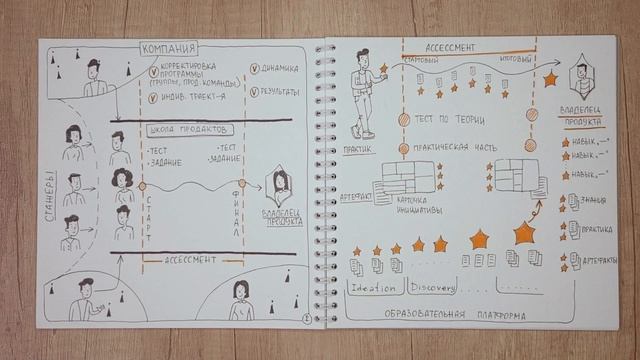 КОМПАНИЯ
КОРРЕКТИРОВКА
ПРОГРАММЫ
(ГРУППЫ, ПРОД. КОМАНДЫ)
ИНДИВ. ТРАЕКТ-Я
ДИНАМИКА
РЕЗУЛЬТАТЫ
ШКОЛА ПРОДАКТОВ
• ТЕСТ
• ЗАДАНИЕ
• ТЕСТ
• ЗАДАНИЕ
СТАЖЕРЫ
СТАРТ
ФИНАЛ
ВЛАДЕЛЕЦ
ПРОДУКТА
АССЕССМЕНТ
1
АССЕССМЕНТ
СТАРТОВЫЙ
ИТОГОВЫЙ
ВЛАДЕЛЕЦ
ПРОДУКТА
ТЕСТ ПО ТЕОРИИ
ПРАКТИК
ПРАКТИЧЕСКАЯ ЧАСТЬ
НАВЫК
НАВЫК
НАВЫК
АРТЕФАКТ
КАРТОЧКА
ИНИЦИАТИВЫ
ЗНАНИЯ
ПРАКТИКА
АРТЕФАКТЫ
Ideation
Discovery
ОБРАЗОВАТЕЛЬНАЯ ПЛАТФОРМА